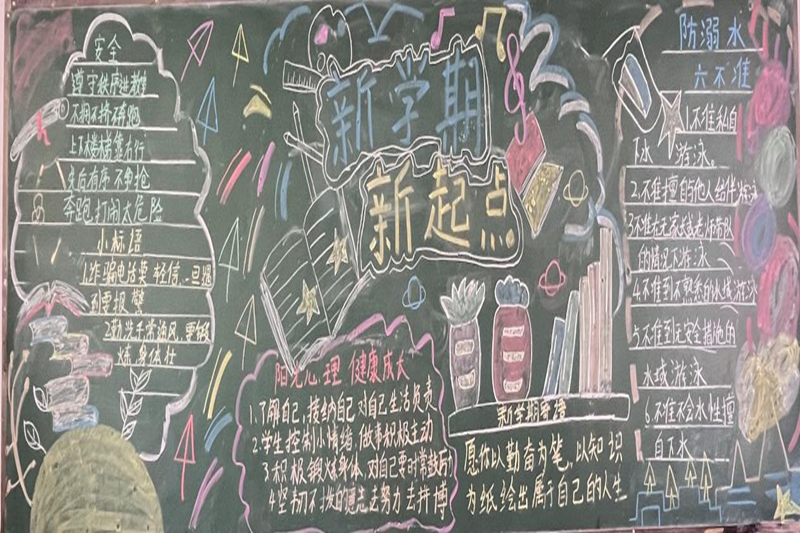 安全
遵守秩序进教室
不拥不挤不奔跑
上下楼梯靠右行
先后有序不争抢
奔跑打闹太危险
小标语
1.诈骗电话要轻信，旦遇
到要报警
2.勤洗手常通风，要锻
炼身体壮
新学期
新起点
阳光心理健康成大
1.了解自己，接纳自己，对自己生活负责
2.学生控制小情绪，做事积极主动
3.积极锻炼身体，对自己要时常教后
4.坚韧不拨的意志去努力去拼博
新学期寄语
愿你以勤奋为笔，以知识
为纸绘出属于自己的人生
防溺水
六不准
1.不准私自
下水游泳。
2.不准擅自与他人结伴游泳
3.不准在无家长或老师带队
的情况下游泳
4.不准到不熟悉的水域游泳
5.不准到无安全措施的
水域游泳
6.不准不会水性擅
自下水